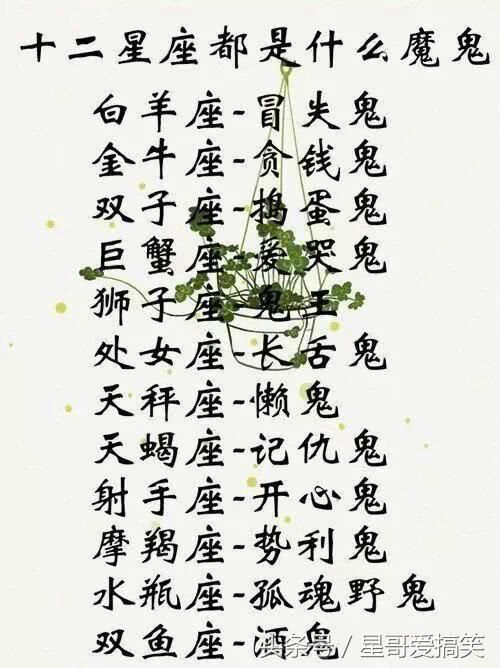 十二星座都是什么魔鬼
白羊座-冒失鬼
金牛座-贪钱鬼
双子座-捣蛋鬼
巨蟹座-爱哭鬼
狮子座-鬼王
处女座-长舌鬼
天秤座-懒鬼
天蝎座-记仇鬼
射手座-开心鬼
摩羯座-势利鬼
水瓶座-孤魂野鬼
双鱼座-酒鬼
头条号 / 星哥爱搞笑